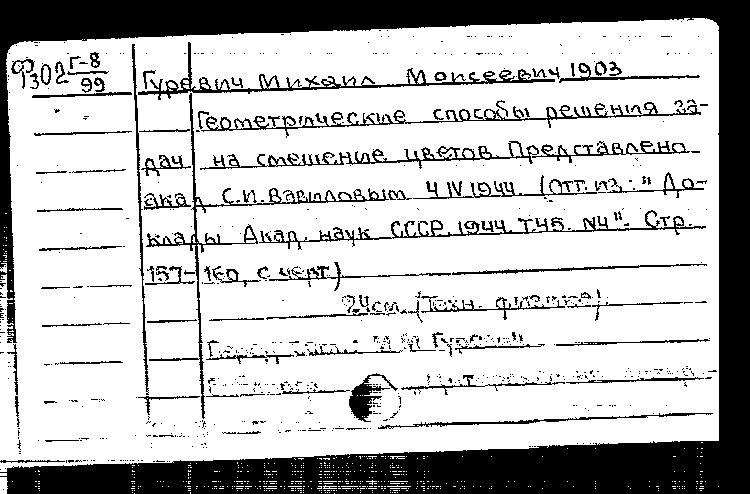 Ф302 Г-8/99
Гуревич, Михаил Моисеевич, 1903
Геометрические способы решения за-
дач на смешение цветов. Представлено
акад. С.И. Вавиловым 4 IV 1944. (Отт. из.: "До-
клады Акад. наук СССР, 1944. Т.45. №4". Стр.
157-160, с черт.)
24 см. (Техн. физика).
М.М. Гуревич.